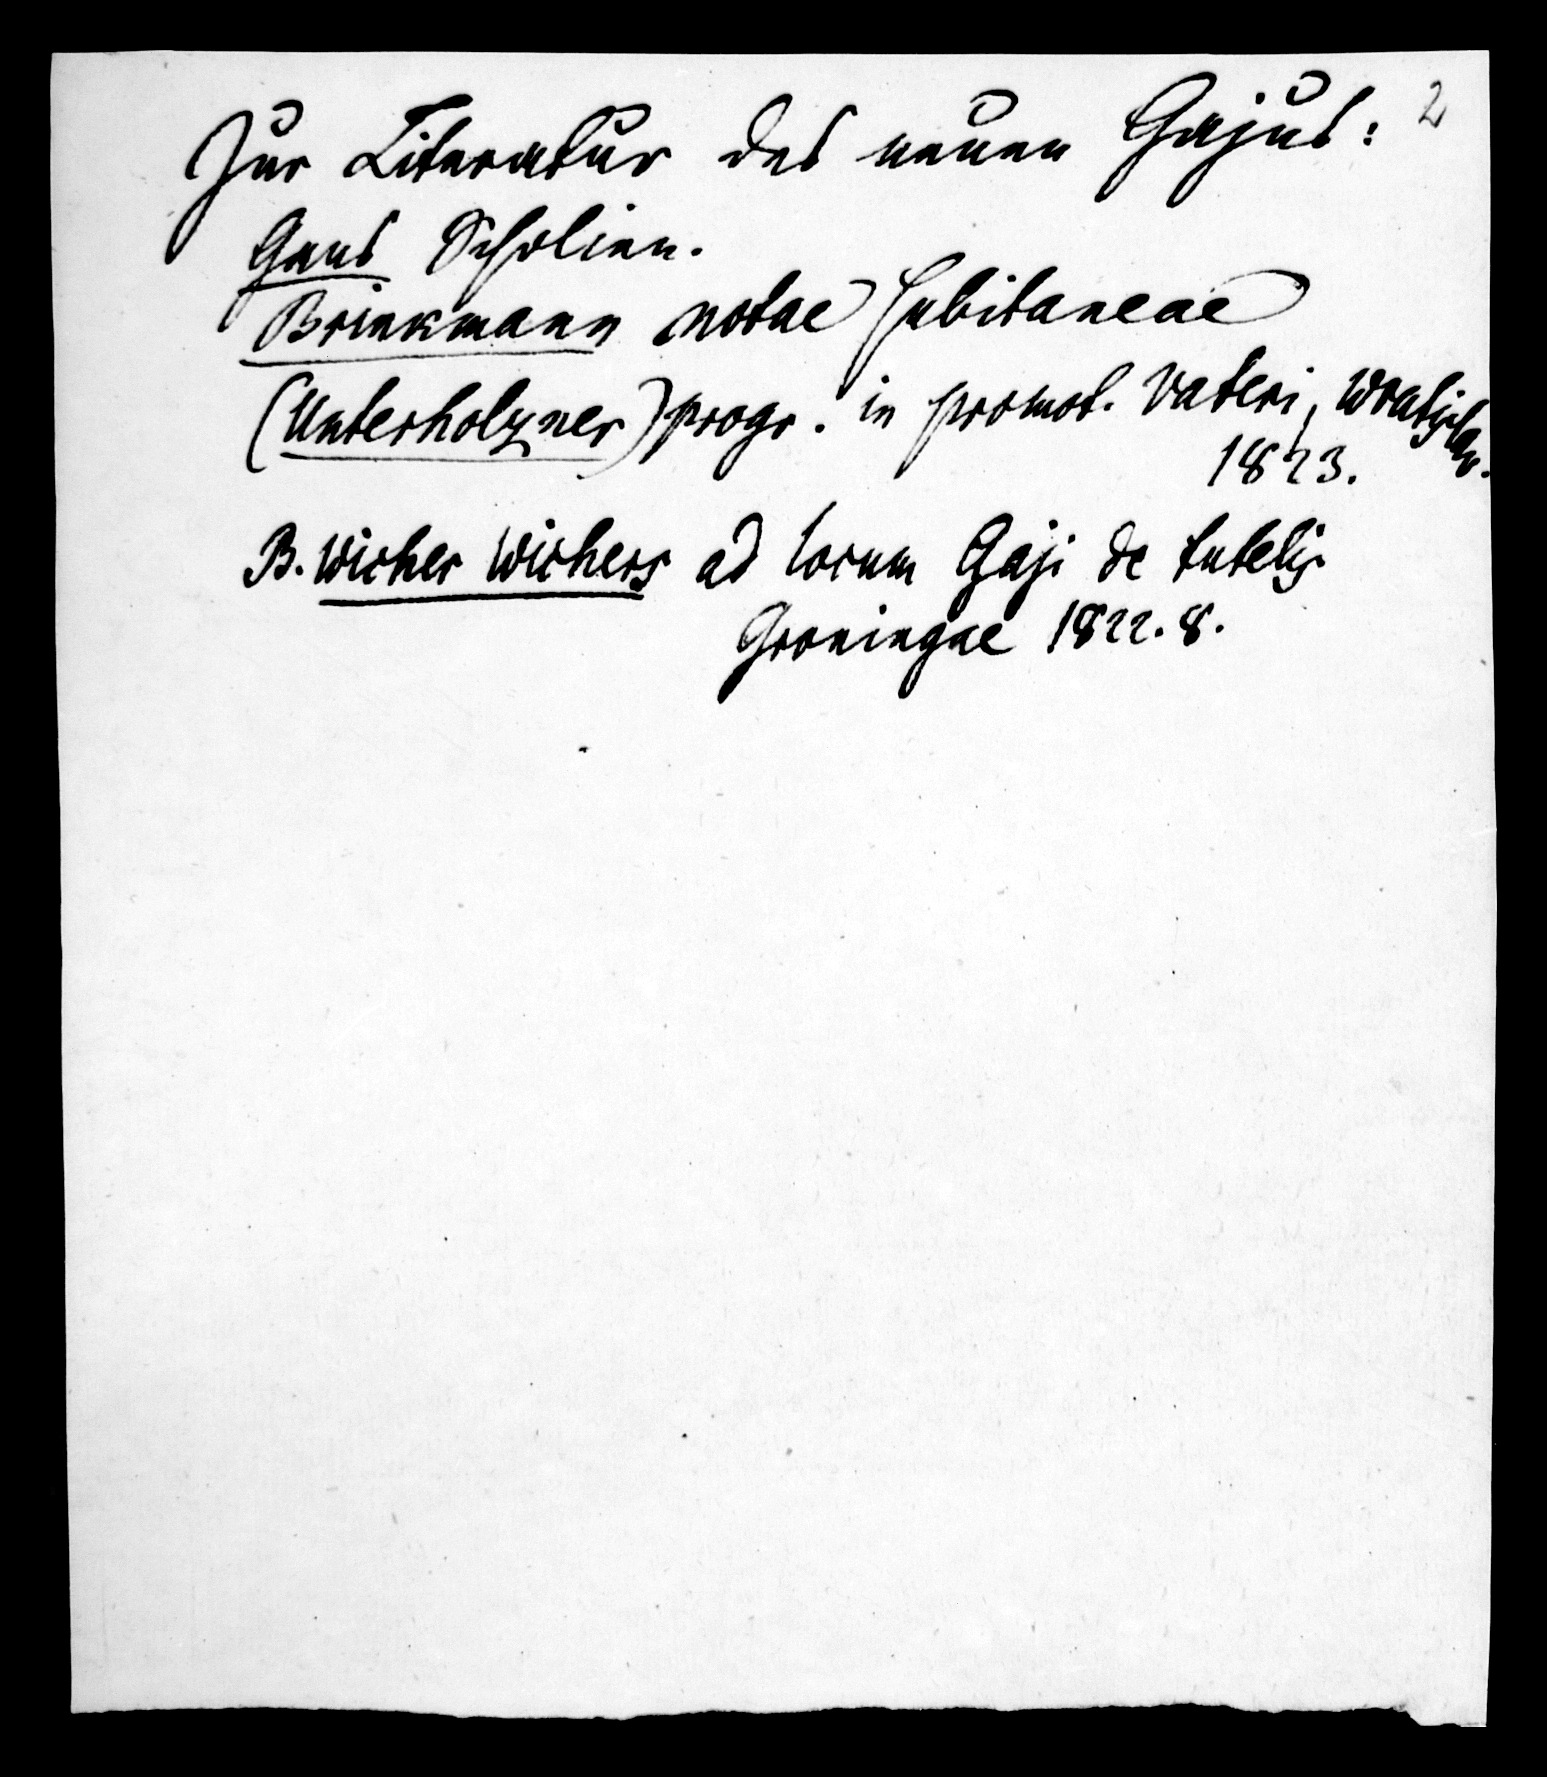 2
Zur Literatur des neuen Gajus:
Gans Scholien.
Brinkmann notae subitaneae
(Unterholzner) progr. in promot. Vateri, Wratislav.
1823.
B. Wicher Wichers ad locum Gaji de tutelis
Groningae 1822. 8.